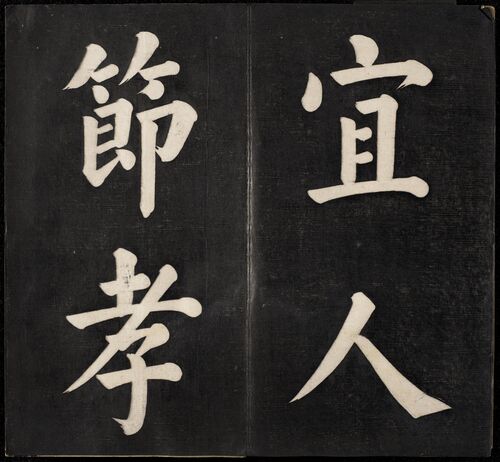 宜人
節孝